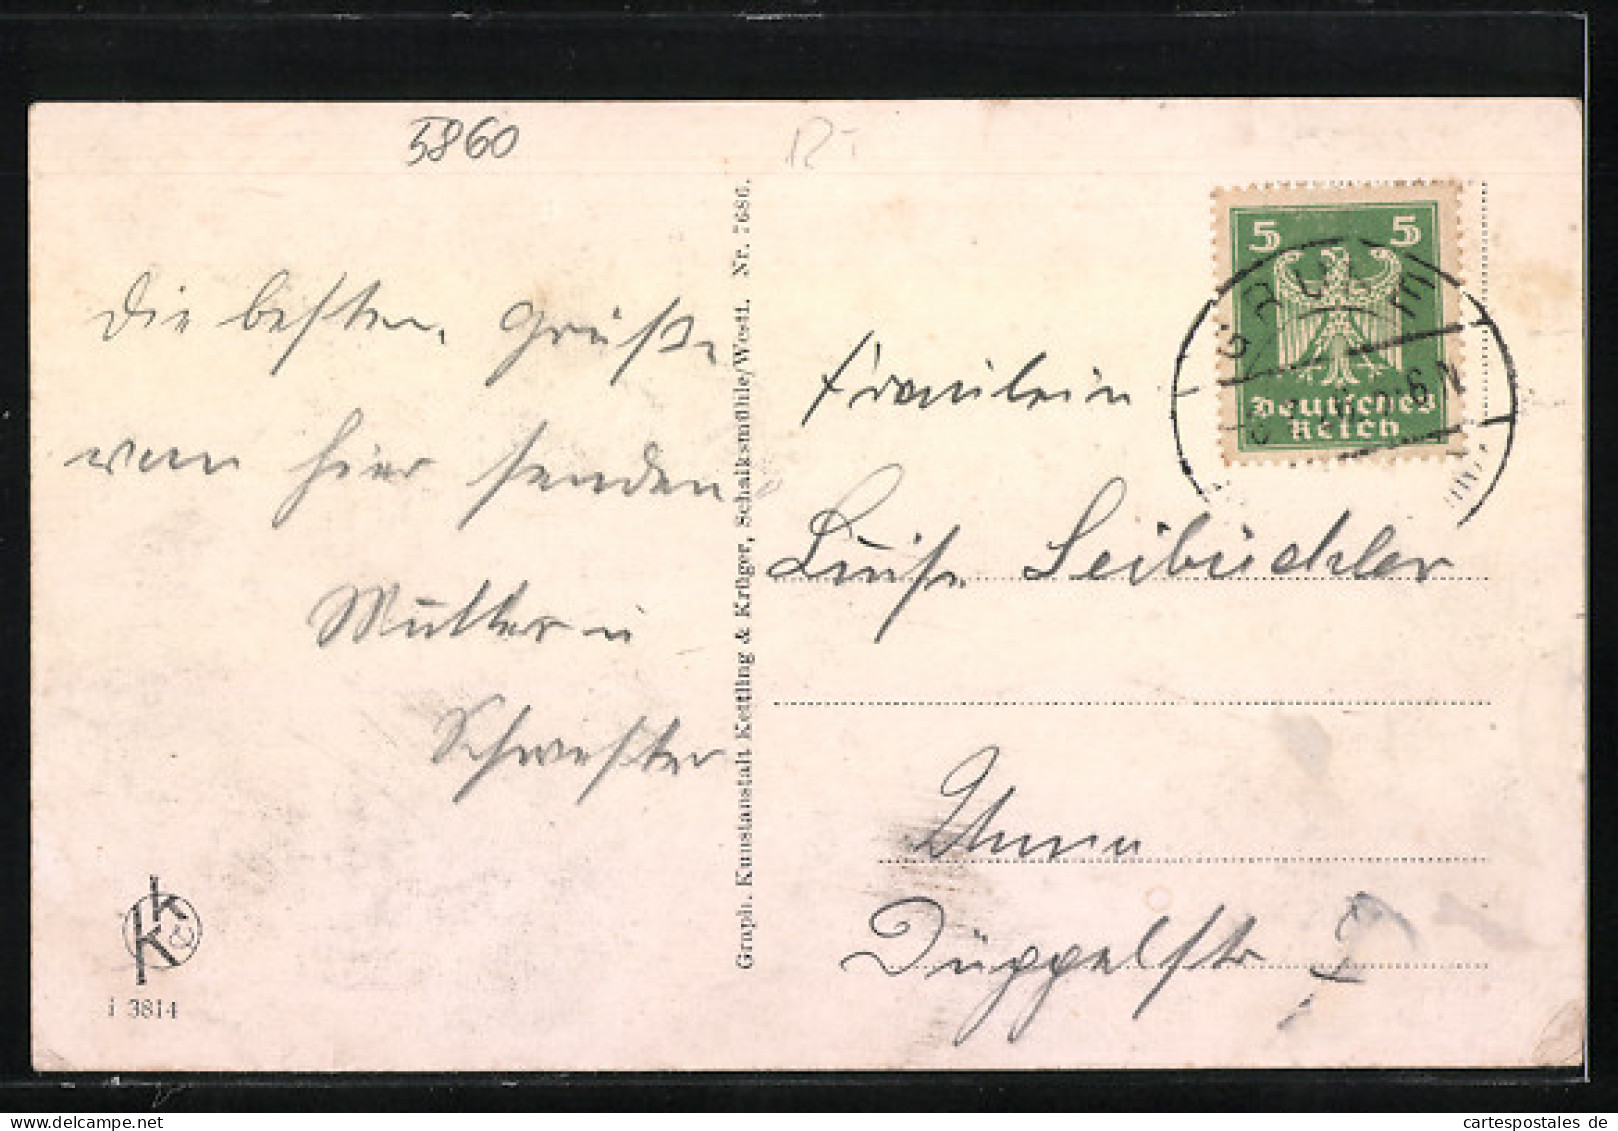 5860
die besten Grüße
von hier senden
Mutter u
Schwester
i 3814
Graph. Kunstanstalt Kettling & Krüger, Schalksmühle/Westf. Nr. 7686.
5 5
Deutsches
Reich
Fräulein
Luise Seibüchler
Düppelstr
cartespostales.de